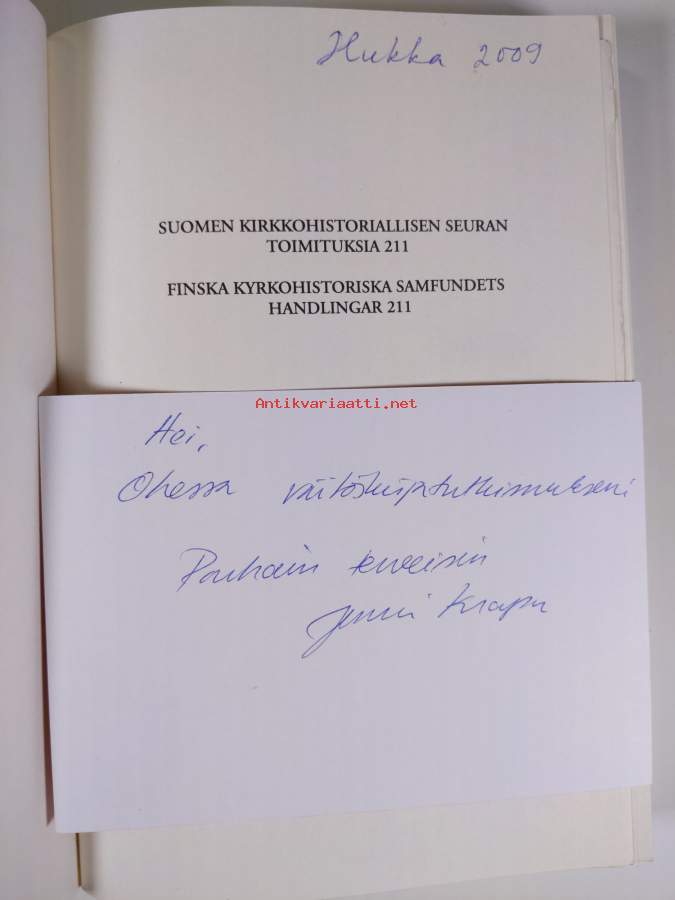 Hukka 2009
SUOMEN KIRKKOHISTORIALLISEN SEURAN
TOIMITUKSIA 211
FINSKA KYRKOHISTORISKA SAMFUNDETS
HANDLINGAR 211
Antikvariaatti.net
Hei,
Ohessa väitöskirjatutkimukseni
Parhain terveisin
Jenni Krapu